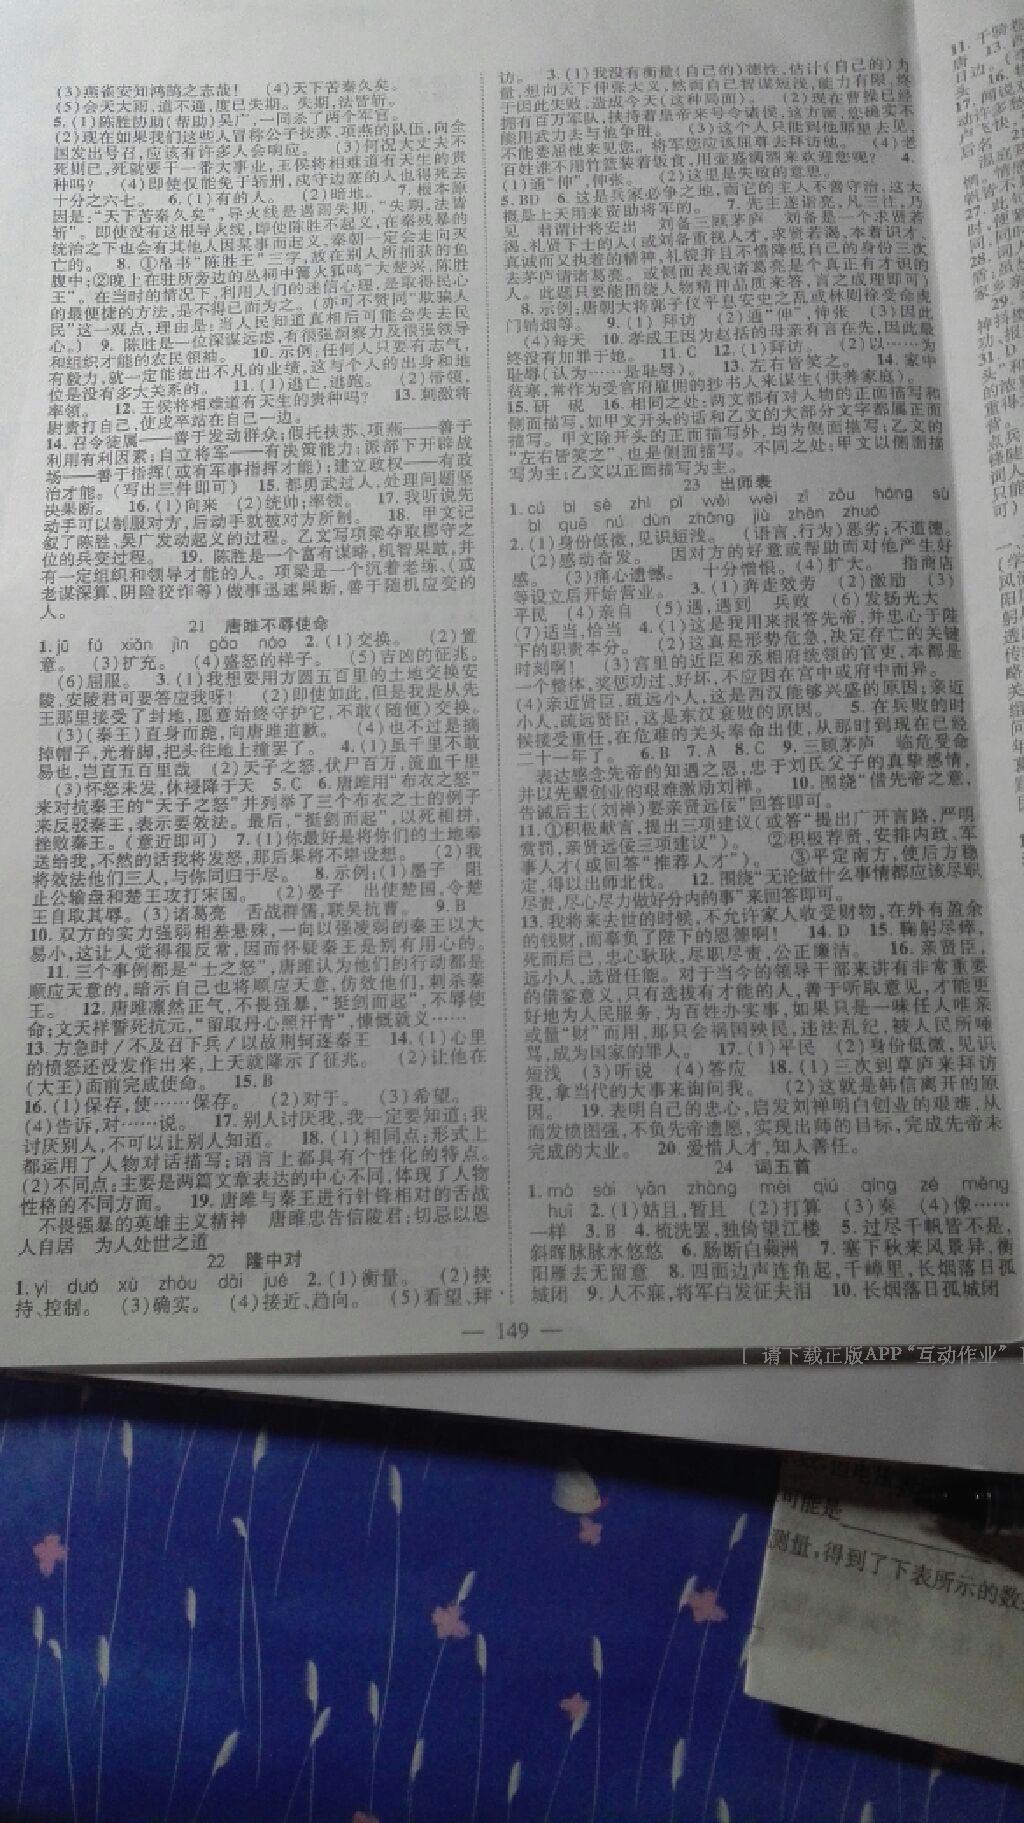 (3)燕雀安知鸿鹄之志哉! (4)天下苦秦久矣。
(5)会天大雨,道不通,度已失期。失期,法皆斩。
5.(1)陈胜协助(帮助)吴广,一同杀了两个军官。
(2)现在如果我们这些人冒称公子扶苏、项燕的队伍,向全
国发出号召,应该有许多人会响应。 (3)何况大丈夫不
死则已,死就要干一番大事业,王侯将相难道有天生的贵
种吗? (4)即使仅能免于斩刑,戍守边塞的人也得死去
十分之六七。 6.(1)有的人。 (2)暗地。 7. 根本原
因是:“天下苦秦久矣”,导火线是遇雨失期,“失期,法皆
斩”。即使没有这根导火线,即使陈胜不起义,在秦残暴的
统治之下也会有其他人因某事而起义,秦朝一定会走向灭
亡的。 8. ①帛书“陈胜王”三字,放在别人所捕获的鱼
腹中;②晚上在驻所旁边的丛祠中篝火狐鸣“大楚兴,陈胜
王”。在当时的情况下,利用人们的迷信心理,是取得民心
的最便捷的方法,是不得已而为之。(亦可不赞同“欺骗人
民”这一观点,理由是:当人民知道真相后可能会失去民
心。) 9. 陈胜是一位深谋远虑,有很强洞察力及很强领导
和组织才能的农民领袖。 10. 示例:任何人只要有志气,
有毅力,就一定能做出不凡的业绩,这与个人的出身和地
位是没有多大关系的。 11.(1)逃亡,逃跑。 (2)带领,
率领。 12. 王侯将相难道有天生的贵种吗? 13. 刺激将
尉责打自己,使戍卒站在自己一边。
14. 召令徒属——善于发动群众;假托扶苏、项燕——善于
利用有利因素;自立将军——有决策能力;派部下开辟战
场——善于指挥(或有军事指挥才能);建立政权——有政
治才能。(写出三件即可) 15. 都勇武过人,处理问题坚
决果断。 16.(1)向来 (2)统帅;率领。 17. 我听说先
动手可以制服对方,后动手就被对方所制。 18. 甲文记
叙了陈胜、吴广发动起义的过程。乙文写项梁夺取郡守之
位的兵变过程。 19. 陈胜是一个富有谋略,机智果敢,并
有一定组织和领导才能的人。项梁是一个沉着老练、(或
老谋深算、阴险狡诈等)做事迅速果断,善于随机应变的
人。
21 唐雎不辱使命
1. jū fú xiǎn jìn gǎo 2.(1)交换。 (2)置
意。 (3)扩充。 (4)盛怒的样子。 (5)吉凶的征兆。
(6)屈服。 3.(1)我想要用方圆五百里的土地交换安
陵,安陵君可要答应我呀! (2)即使如此,但是我是从先
王那里接受了封地,愿意始终守护它,不敢(随便)交换。
(3)(秦王)直身而跪,向唐雎道歉。 (4)也不过是摘
掉帽子,光着脚,把头往地上撞罢了。 4.(1)虽千里不敢
易也,岂直五百里哉 (2)天子之怒,伏尸百万,流血千里
(3)怀怒未发,休祲降于天 5. C 6. 唐雎用“布衣之怒”
来对抗秦王的“天子之怒”并列举了三个布衣之士的例子
来反驳秦王,表示要效法。最后,“挺剑而起”,以死相拼,
挫败秦王。(意近即可) 7.(1)你最好是将你们的土地奉
送给我,不然的话我将发怒,那后果将不堪设想。 (2)我
将效法他们三人,与你同归于尽。 8. 示例:(1)墨子 阻
止公输盘和楚王攻打宋国。 (2)晏子 出使楚国,令楚
王自取其辱。(3)诸葛亮 舌战群儒,联吴抗曹。 9. B
10. 双方的实力强弱相差悬殊,一向以强凌弱的秦王以大
易小,这让人觉得很反常,因而怀疑秦王是别有用心的。
11. 三个事例都是“士之怒”,唐雎认为他们的行动都是
顺应天意的,暗示自己也将顺应天意,仿效他们,刺杀秦
王。 12. 唐雎凛然正气,不畏强暴,“挺剑而起”,不辱使
命;文天祥誓死抗元,“留取丹心照汗青”,慷慨就义……
13. 方急时/不及召下兵/以故荆轲逐秦王 14.(1)心里
的愤怒还没发作出来,上天就降示了征兆。 (2)让他在
(大王)面前完成使命。 15. B
16.(1)保存,使……保存。 (2)对于。 (3)希望。
(4)告诉,对……说。 17. 别人讨厌我,我一定要知道;我
讨厌别人,不可以让别人知道。 18.(1)相同点:形式上
都运用了人物对话描写;语言上都具有个性化的特点。
(2)不同点:主要是两篇文章表达的中心不同,体现了人物
性格的不同方面。 19. 唐雎与秦王进行针锋相对的舌战
不畏强暴的英雄主义精神 唐雎忠告信陵君;切忌以恩
人自居 为人处世之道
22 隆中对
1. yì duó xù zhòu dài jué 2.(1)衡量。 (2)挟
持、控制。 (3)确实。 (4)接近、趋向。 (5)看望、拜
访。 3.(1)我没有衡量(自己的)德性,估计(自己的)力
量,想向天下伸张大义,然而自己智谋短浅,能力有限,终
于因此失败,造成今天(这种局面)。 (2)现在曹操已经
拥有百万军队,挟持着皇帝来号令诸侯,这方面,您确实不
能用武力去与他争胜。 (3)这个人只能到他那里去见,
不能委屈他来见您。将军您应该屈尊去拜访他。 (4)老
百姓谁不用竹篮装着饭食,用壶盛满酒来欢迎您呢? 4.
(1)通“伸”,伸张。 (2)这里是失败的意思。
5. BD 6. 这是兵家必争之地,而它的主人不善守治,这大
概是上天用来资助将军的。 7. 先主遂诣亮,凡三往,乃
见 君谓计将安出 刘备三顾茅庐 刘备是一个求贤若
渴、礼贤下士的人(或刘备重视人才,求贤若渴,本着识才、
真诚而又执着的精神,礼貌并且不惜降低自己的身份三次
去茅庐请诸葛亮。或侧面表现诸葛亮是个真正有才识的
人。此题只要能围绕人物精神品质来答,言之成理即可)
8. 示例:唐朝大将郭子仪平息安史之乱或林则徐受命虎
门销烟等。 9.(1) 拜访 (2)通“伸”,伸张 (3)因此
(4)每天 10. 孝成王因为赵括的母亲有言在先,因此最
终没有加罪于她。 11. C 12.(1)拜访。 (2)以……为
耻辱(认为……是耻辱)。 13. 左右皆笑之。 14. 家中
贫寒,常作为受官府雇佣的抄书人来谋生(供养家庭)。
15. 研 砚 16. 相同之处:两文都有对人物的正面描写和
侧面描写,如甲文开头的话和乙文的大部分文字都属正面
描写。甲文除开头的正面描写外,均为侧面描写;乙文的
“左右皆笑之”,也是侧面描写。不同之处:甲文以侧面描
写为主;乙文以正面描写为主。
23 出师表
1. cú bì sè zhì pǐ wèi wěi zī zōu háng sù
bì quē nú dùn zhāng jiù zhēn zhuó
2.(1)身份低微,见识短浅。 (语言,行为)恶劣;不道德。
(2)感动奋发。 因对方的好意或帮助而对他产生好
感。 (3)痛心遗憾。 十分憎恨。(4)扩大。 指商店
等设立后开始营业。 3.(1)奔走效劳 (2)激励 (3)
平民 (4)亲自 (5)遇,遇到 兵败 (6)发扬光大
(7)适当,恰当 4.(1)这是我用来报答先帝,并忠心于陛
下的职责本分。 (2)这真是形势危急,决定存亡的关键
时刻啊! (3)宫里的近臣和丞相府统领的官吏,本都是
一个整体,奖惩功过,好坏,不应因在宫中或府中而异。
(4)亲近贤臣,疏远小人,这是西汉能够兴盛的原因;亲近
小人,疏远贤臣,这是东汉衰败的原因。 5. 在兵败的时
候接受重任,在危难的关头奉命出使,从那时到现在已经
二十一年了。 6. B 7. A 8. C 9. 三顾茅庐 临危受命
表达感念先帝的知遇之恩,忠于刘氏父子的真挚感情,
并以先辈创业的艰难激励刘禅。 10. 围绕“借先帝之意,
告诫后主(刘禅)要亲贤远佞”回答即可。
11. ①积极献言,提出三项建议(或答“提出广开言路,严明
赏罚,亲贤远佞三项建议”)。 ②积极荐贤,安排内政、军
事人才(或回答“推荐人才”)。 ③平定南方,使后方稳
定,得以出师北伐。 12. 围绕“无论做什么事情都应该尽职
尽责,尽心尽力做好分内的事”来回答即可。
13. 我将来去世的时候,不允许家人收受财物,在外有盈余
的钱财,而辜负了陛下的恩德啊! 14. D 15. 鞠躬尽瘁,
死而后已,忠心耿耿,尽职尽责,公正廉洁。 16. 亲贤臣,
远小人,选贤任能。对于当今的领导干部来讲有非常重要
的借鉴意义,只有选拔有才能的人,善于听取意见,才能更
好地为人民服务,为百姓办实事,如果只是一味任人唯亲
或量“财”而用,那只会祸国殃民,违法乱纪,被人民所唾
骂,成为国家的罪人。 17.(1)平民 (2)身份低微,见识
短浅 (3)听说 (4)答应 18.(1)三次到草庐来拜访
我,拿当代的大事来询问我。 (2)这就是韩信离开的原
因。 19. 表明自己的忠心,启发刘禅明白创业的艰难,从
而发愤图强,不负先帝遗愿,实现出师的目标,完成先帝未
完成的大业。 20. 爱惜人才,知人善任。
24 词五首
1. mò sài yān zhàng méi qiú qíng zé měng
huī 2.(1)姑且,暂且 (2)打算 (3)奏 (4)像……
一样 3. B 4. 梳洗罢,独倚望江楼 5. 过尽千帆皆不是,
斜晖脉脉水悠悠 6. 肠断白蘋洲 7. 塞下秋来风景异,衡
阳雁去无留意 8. 四面边声连角起,千嶂里,长烟落日孤
城闭 9. 人不寐,将军白发征夫泪 10. 长烟落日孤城闭
— 149 —
[ 请下载正版APP“互动作业” ]
可能是
测量,得到了下表所示的数